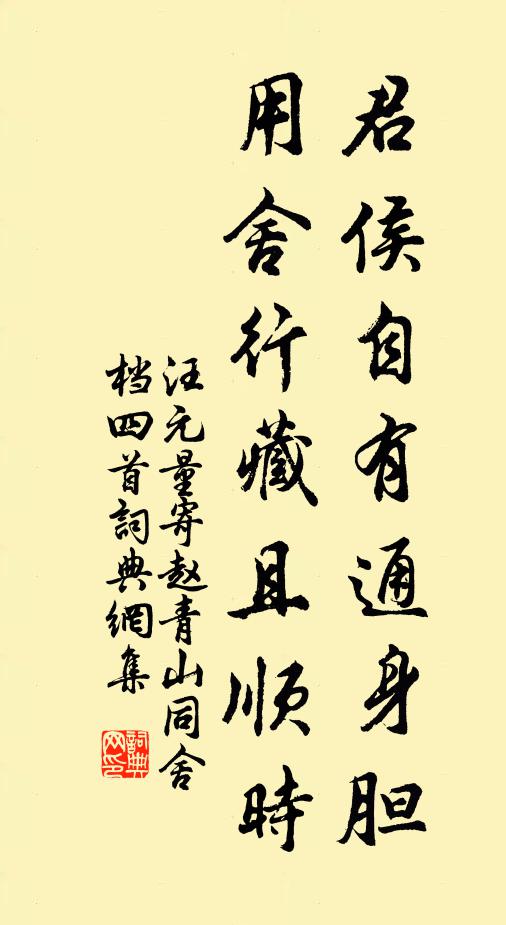 君侯自有通身胆
用舍行藏且顺時
汪元量寄赵青山同舍
档四首詞典網集
詞典網印